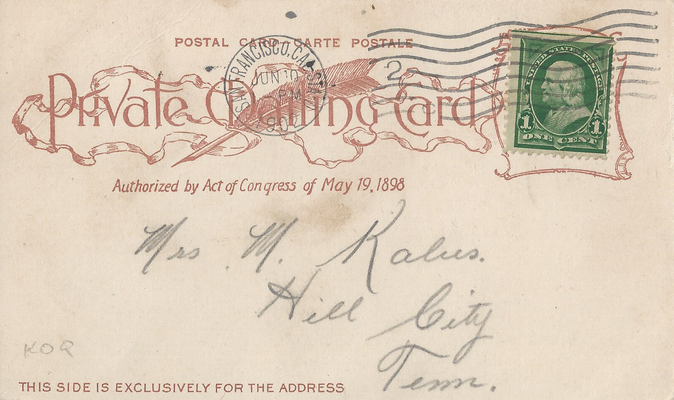 POSTAL CARD, CARTE POSTALE
SAN FRANCISCO, CAL.
JUN 10
PM
2
UNITED STATES
1 ONE CENT 1
Private Mailing Card
Authorized by Act of Congress of May 19, 1898
Mrs M. Kalus.
Hill City
Tenn.
KOR
THIS SIDE IS EXCLUSIVELY FOR THE ADDRESS